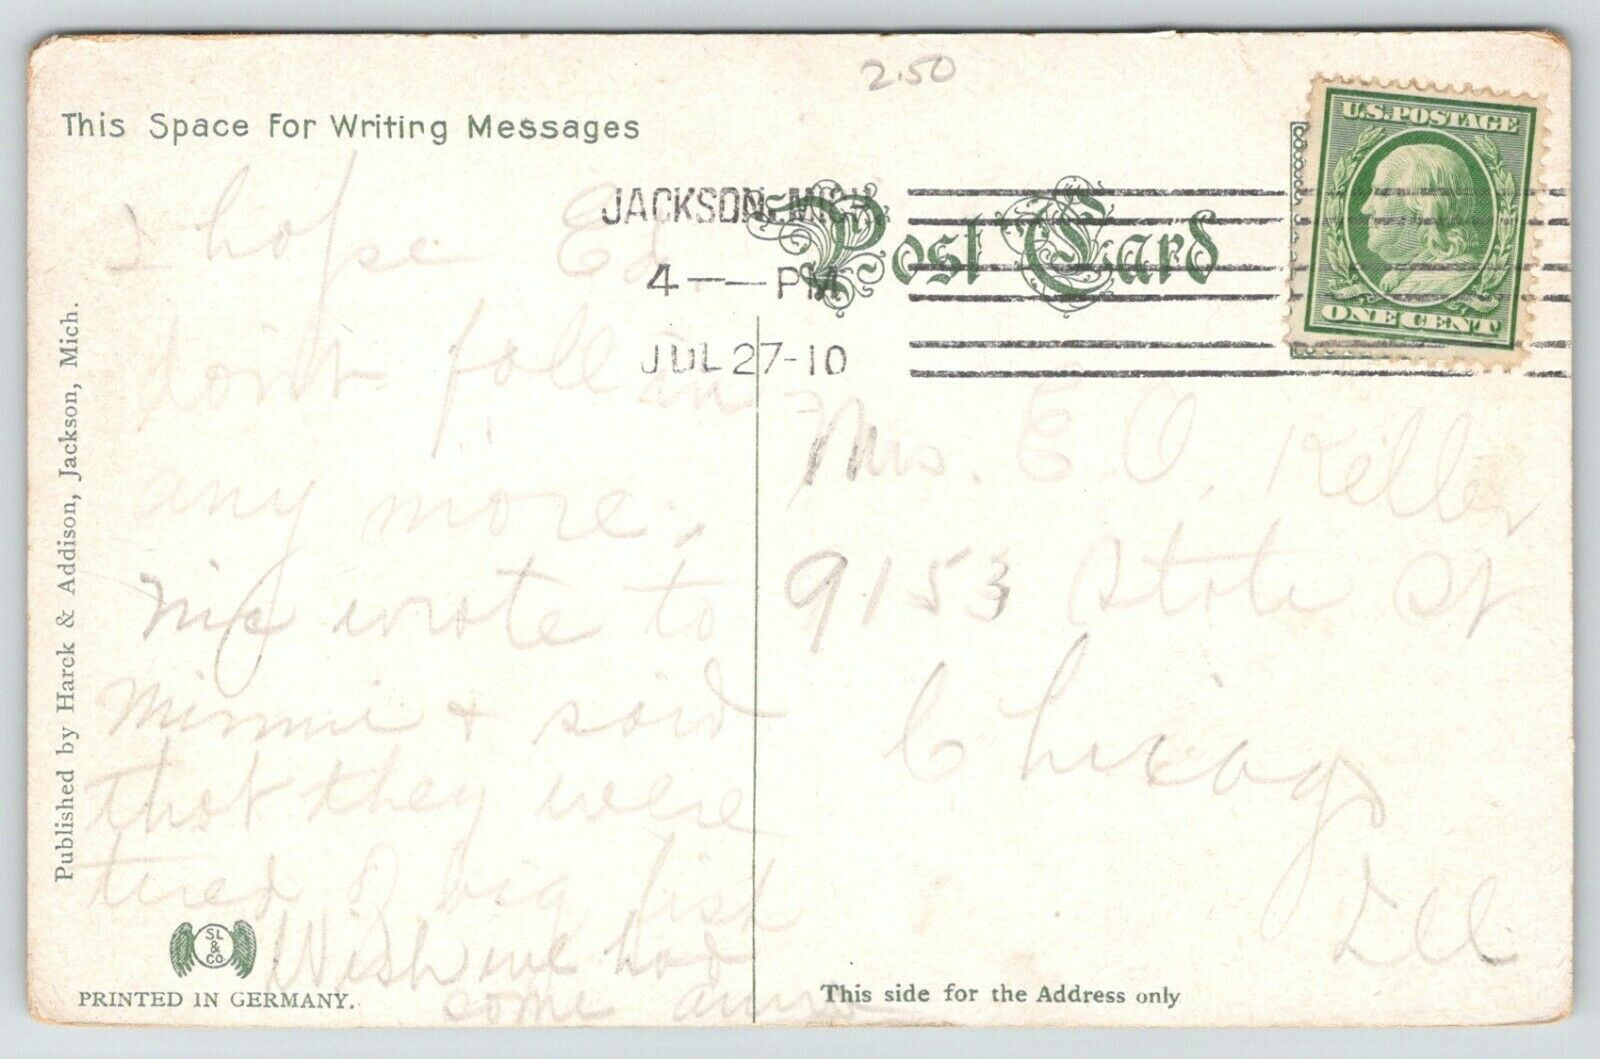 2.50
This Space For Writing Messages
U.S. POSTAGE
ONE CENT
JACKSON, MICH.
4 — PM
JUL 27-10
Post Card
I hope Ed
don't fall in
any more.
wrote to
Minnie & said
that they were
tired of big fish
Wish we had
some
Mrs. E. O. Keller
9153 State St
Chicago
Ill
Published by Harck & Addison, Jackson, Mich.
SL
&
CO
PRINTED IN GERMANY.
This side for the Address only